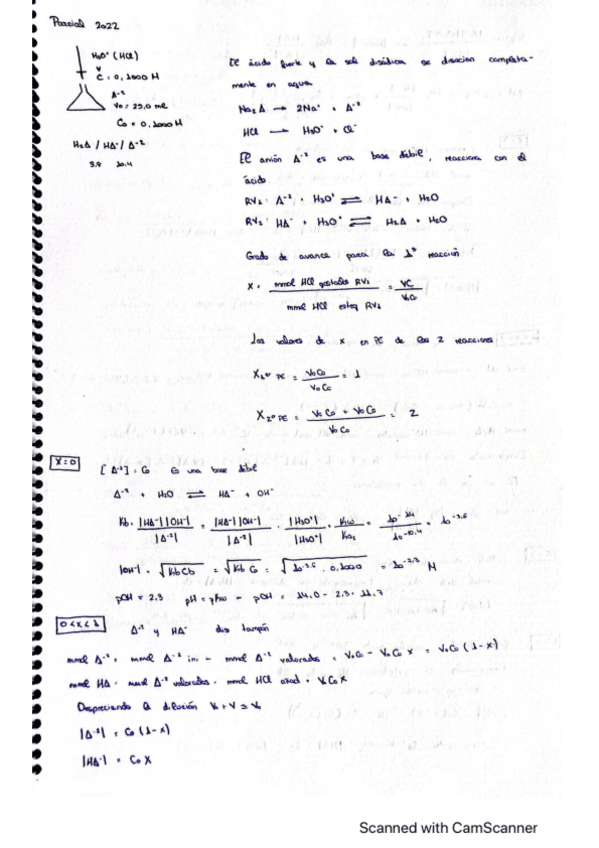 Parcial 2022
H₃O⁺ (HCl)
C = 0,1000 M
A⁻²
V₀ = 25,0 mL
C₀ = 0,1000 M
H₂A / HA⁻ / A⁻²
10.4
El ácido fuerte y la sal disódica se disocian completa-
mente en agua.
Na₂A → 2Na⁺ + A⁻²
HCl → H₃O⁺ + Cl⁻
El anión A⁻² es una base débil, reacciona con el
ácido.
RV₁: A⁻² + H₃O⁺ ⇌ HA⁻ + H₂O
RV₂: HA⁻ + H₃O⁺ ⇌ H₂A + H₂O
Grado de avance para la 1ª reacción
X = mmol HCl gastados RV₁ / mmol HCl esteq RV₁ = VC / V₀C₀
Los valores de x en PE de las 2 reacciones
X₁ᵉʳ PE = V₀C₀ / V₀C₀ = 1
X₂º PE = V₀C₀ + V₀C₀ / V₀C₀ = 2
X=0
[A⁻²] = C₀ Es una base débil
A⁻² + H₂O ⇌ HA⁻ + OH⁻
Kb = |HA⁻||OH⁻| / |A⁻²| = |HA⁻||OH⁻| / |A⁻²| · |H₃O⁺| / |H₃O⁺| = Kw / Ka₂ = 10⁻¹⁴ / 10⁻¹⁰·⁴ = 10⁻³·⁶
|OH⁻| = √Kb Cb = √Kb C₀ = √10⁻³·⁶ · 0,1000 = 10⁻²·³ M
pOH = 2.3 pH = pKw - pOH = 14.0 - 2.3 = 11.7
0<x<1
A⁻² y HA⁻ dis tampón
mmol A⁻² = mmol A⁻² ini - mmol A⁻² valorados = V₀C₀ - V₀C₀ X = V₀C₀ (1-x)
mmol HA⁻ = mmol A⁻² valorados = mmol HCl añad = V₀C₀X
Despreciando la dilución V₀ + V ≃ V₀
|A⁻²| = C₀ (1-x)
|HA⁻| = C₀ X
Scanned with CamScanner